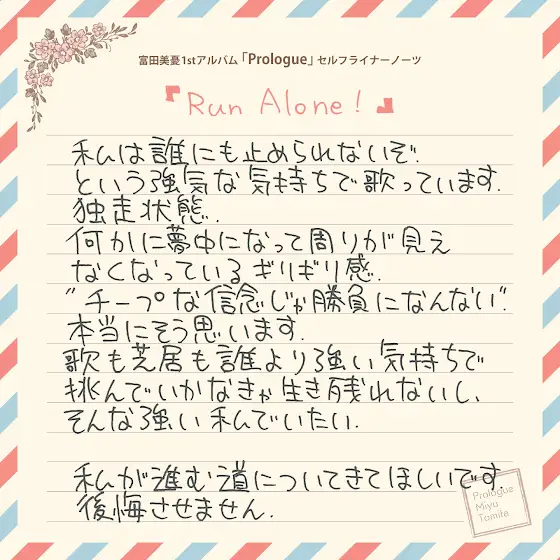 富田美憂1stアルバム「Prologue」セルフライナーノーツ
『Run Alone!』
私は誰にも止められないぞ.
という強気な気持ちで歌っています.
独走状態.
何かに夢中になって周りが見え
なくなっているギリギリ感.
"チープな信念じゃ勝負になんない".
本当にそう思います.
歌も芝居も誰より強い気持ちで
挑んでいかなきゃ生き残れないし、
そんな強い私でいたい.
私が進む道についてきてほしいです.
後悔させません.
Prologue
Miyu
Tomita